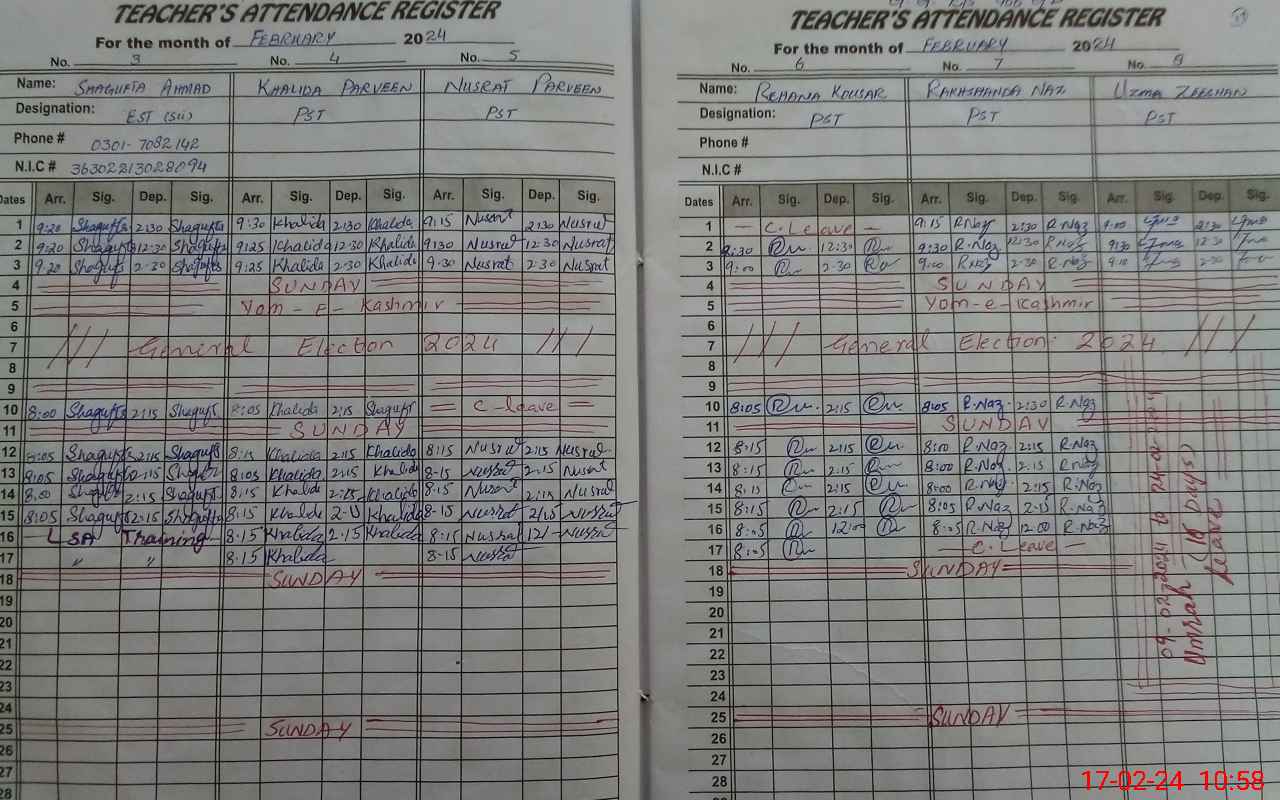 TEACHER'S ATTENDANCE REGISTER
For the month of FEBRUARY 2024
No. 3 No. 4 No. 5
Name: SHAGUFTA AHMAD KHALIDA PARVEEN NUSRAT PARVEEN
Designation: EST (Sci) PST PST
Phone # 0301-7082142
N.I.C # 36302213028094
Dates Arr. Sig. Dep. Sig. Arr. Sig. Dep. Sig. Arr. Sig. Dep. Sig.
1 9:20 Shagufta 2:30 Shagufta 9:30 Khalida 2:30 Khalida 9:15 Nusrat 2:30 Nusrat
2 9:20 Shagufta 12:30 Shagufta 9:25 Khalida 12:30 Khalida 9:30 Nusrat 12:30 Nusrat
3 9:20 Shagufta 2-30 Shagufta 9:25 Khalida 2-30 Khalida 9-30 Nusrat 2:30 Nusrat
4 SUNDAY
5 Yom-e-Kashmir
6
7 General Election 2024
8
9
10 8:00 Shagufta 2:15 Shagufta 8:05 Khalida 2:15 Shagufta C-leave
11 SUNDAY
12 8:05 Shagufta 2:15 Shagufta 8:15 Khalida 2:15 Khalida 8:15 Nusrat 2:15 Nusrat
13 8:05 Shagufta 2:15 Shagufta 8:05 Khalida 2:15 Khalida 8-15 Nusrat 2-15 Nusrat
14 8:00 Shagufta 2:15 Shagufta 8:15 Khalida 2:15 Khalida 8-15 Nusrat 2:15 Nusrat
15 8:05 Shagufta 2-15 Shagufta 8:15 Khalida 2-15 Khalida 8-15 Nusrat Nusrat
16 LSA Training 8-15 Khalida 2-15 Khalida 8:15 Nusrat Nusrat
17 " " 8:15 Khalida 8-15 Nusrat
18 SUNDAY
19
20
21
22
23
24
25 SUNDAY
26
27
28
TEACHER'S ATTENDANCE REGISTER
For the month of FEBRUARY 2024
No. 6 No. 7 No. 8
Name: REHANA KOUSAR RAKHSHANDA NAZ UZMA ZEESHAN
Designation: PST PST PST
Phone #
N.I.C #
Dates Arr. Sig. Dep. Sig. Arr. Sig. Dep. Sig. Arr. Sig. Dep. Sig.
1 C.Leave 9:15 R.Naz 2:30 R.Naz 9:00 2:30
2 9:30 12:30 9:30 R.Naz 12:30 R.Naz 9:30 12:30
3 9:00 2-30 9:00 R.Naz 2-30 R.Naz 9:10 2:30
4 SUNDAY
5 Yom-e-Kashmir
6
7 General Election 2024
8
9
10 8:05 2:15 8:05 R.Naz 2:30 R.Naz
11 SUNDAY
12 8-15 2:15 8:00 R.Naz 2:15 R.Naz
13 8:15 2:15 8:00 R.Naz 2:15 R.Naz
14 8:15 2:15 8:00 R.Naz 2:15 R.Naz
15 8:15 2:15 8:05 R.Naz 2-15 R.Naz
16 8:05 12:00 8:05 R.Naz 12:00 R.Naz
17 8:05 C.Leave
18 SUNDAY
19
20
21
22
23
24
25 SUNDAY
26
27
28
09-02-2024 to 24-02-2024
Umrah (16 Days)
Leave
17-02-24 10:58